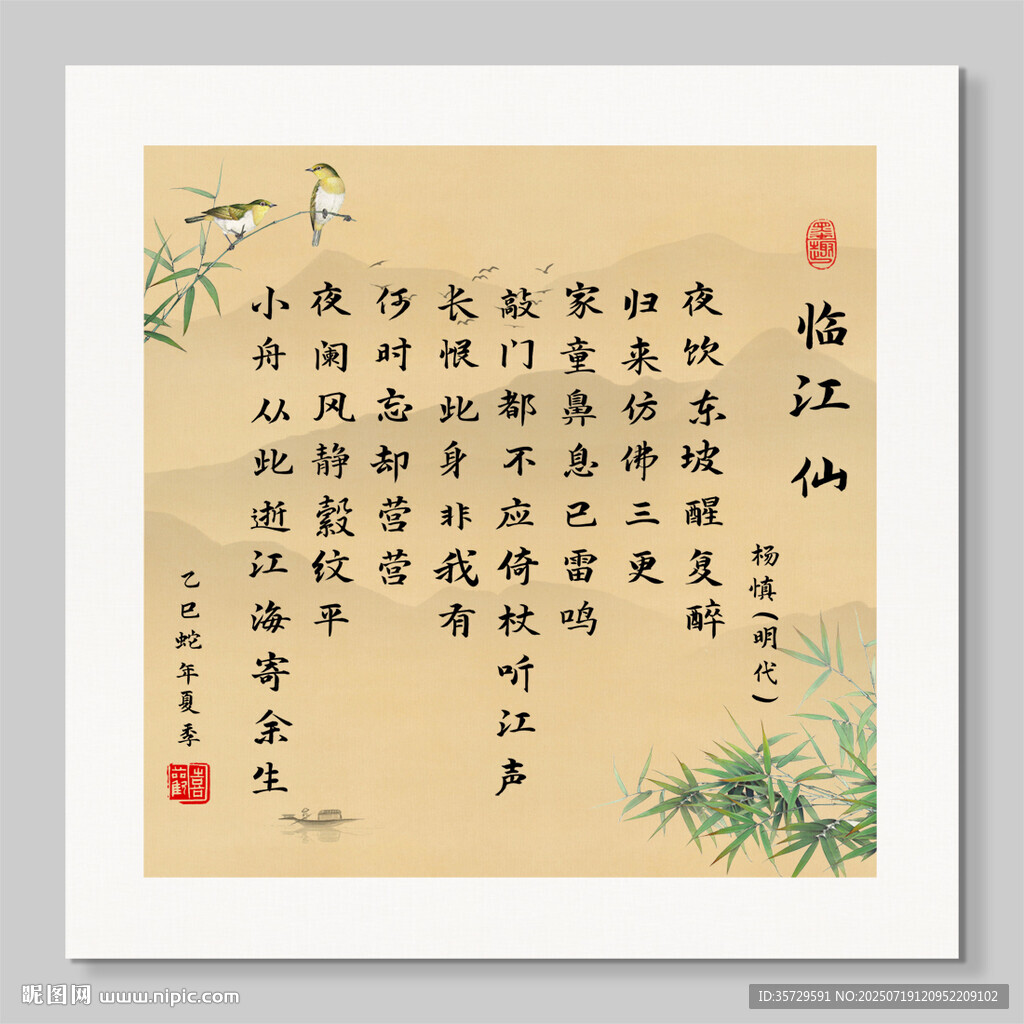 墨趣
临江仙
杨慎(明代)
夜饮东坡醒复醉
归来仿佛三更
家童鼻息已雷鸣
敲门都不应倚杖听江声
长恨此身非我有
何时忘却营营
夜阑风静縠纹平
小舟从此逝江海寄余生
乙巳蛇年夏季
昵图网 www.nipic.com
ID:35729591 NO:20250719120952209102